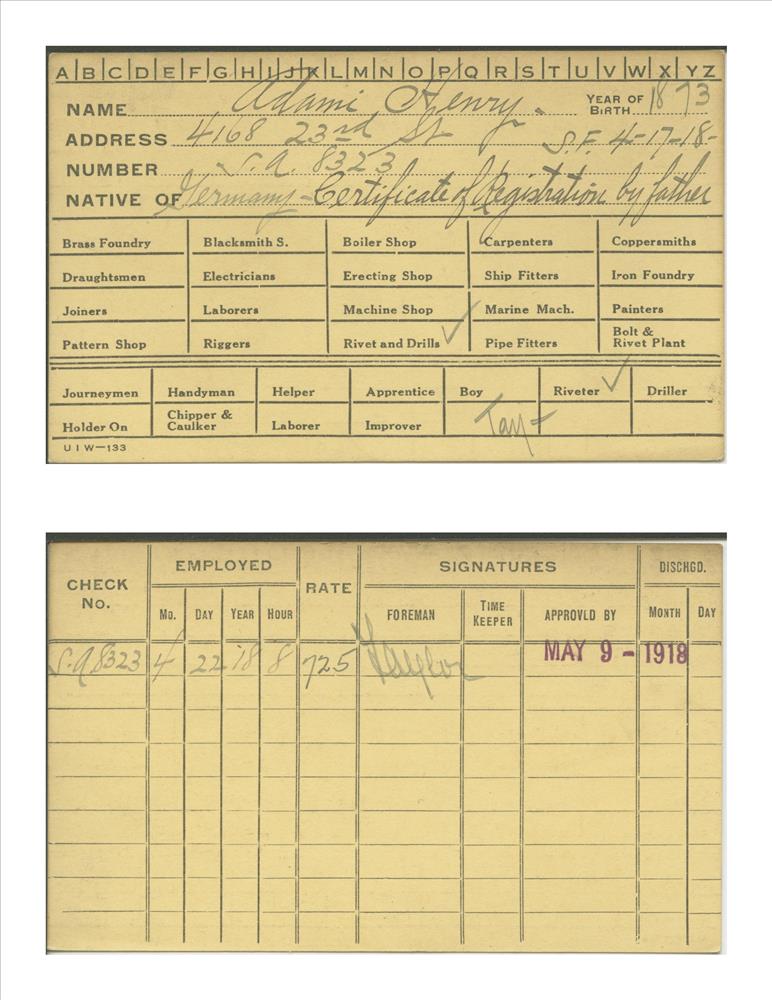 A B C D E F G H I J K L M N O P Q R S T U V W X Y Z
NAME Adami Henry. YEAR OF BIRTH 1873
ADDRESS 4168 23rd St S.F. 4-17-18-
NUMBER S.A. 8323
NATIVE OF Germany - Certificate of Registration by father
Brass Foundry Blacksmith S. Boiler Shop Carpenters Coppersmiths
Draughtsmen Electricians Erecting Shop Ship Fitters Iron Foundry
Joiners Laborers Machine Shop Marine Mach. Painters
Pattern Shop Riggers Rivet and Drills ✓ Pipe Fitters Bolt & Rivet Plant
Journeymen Handyman Helper Apprentice Boy Riveter ✓ Driller
Holder On Chipper & Caulker Laborer Improver Tay-
U I W—133
CHECK No. EMPLOYED RATE SIGNATURES DISCHGD.
Mo. DAY YEAR HOUR FOREMAN TIME KEEPER APPROVLD BY MONTH DAY
S.A 8323 4 22 18 8 725 Taylor MAY 9 - 1918